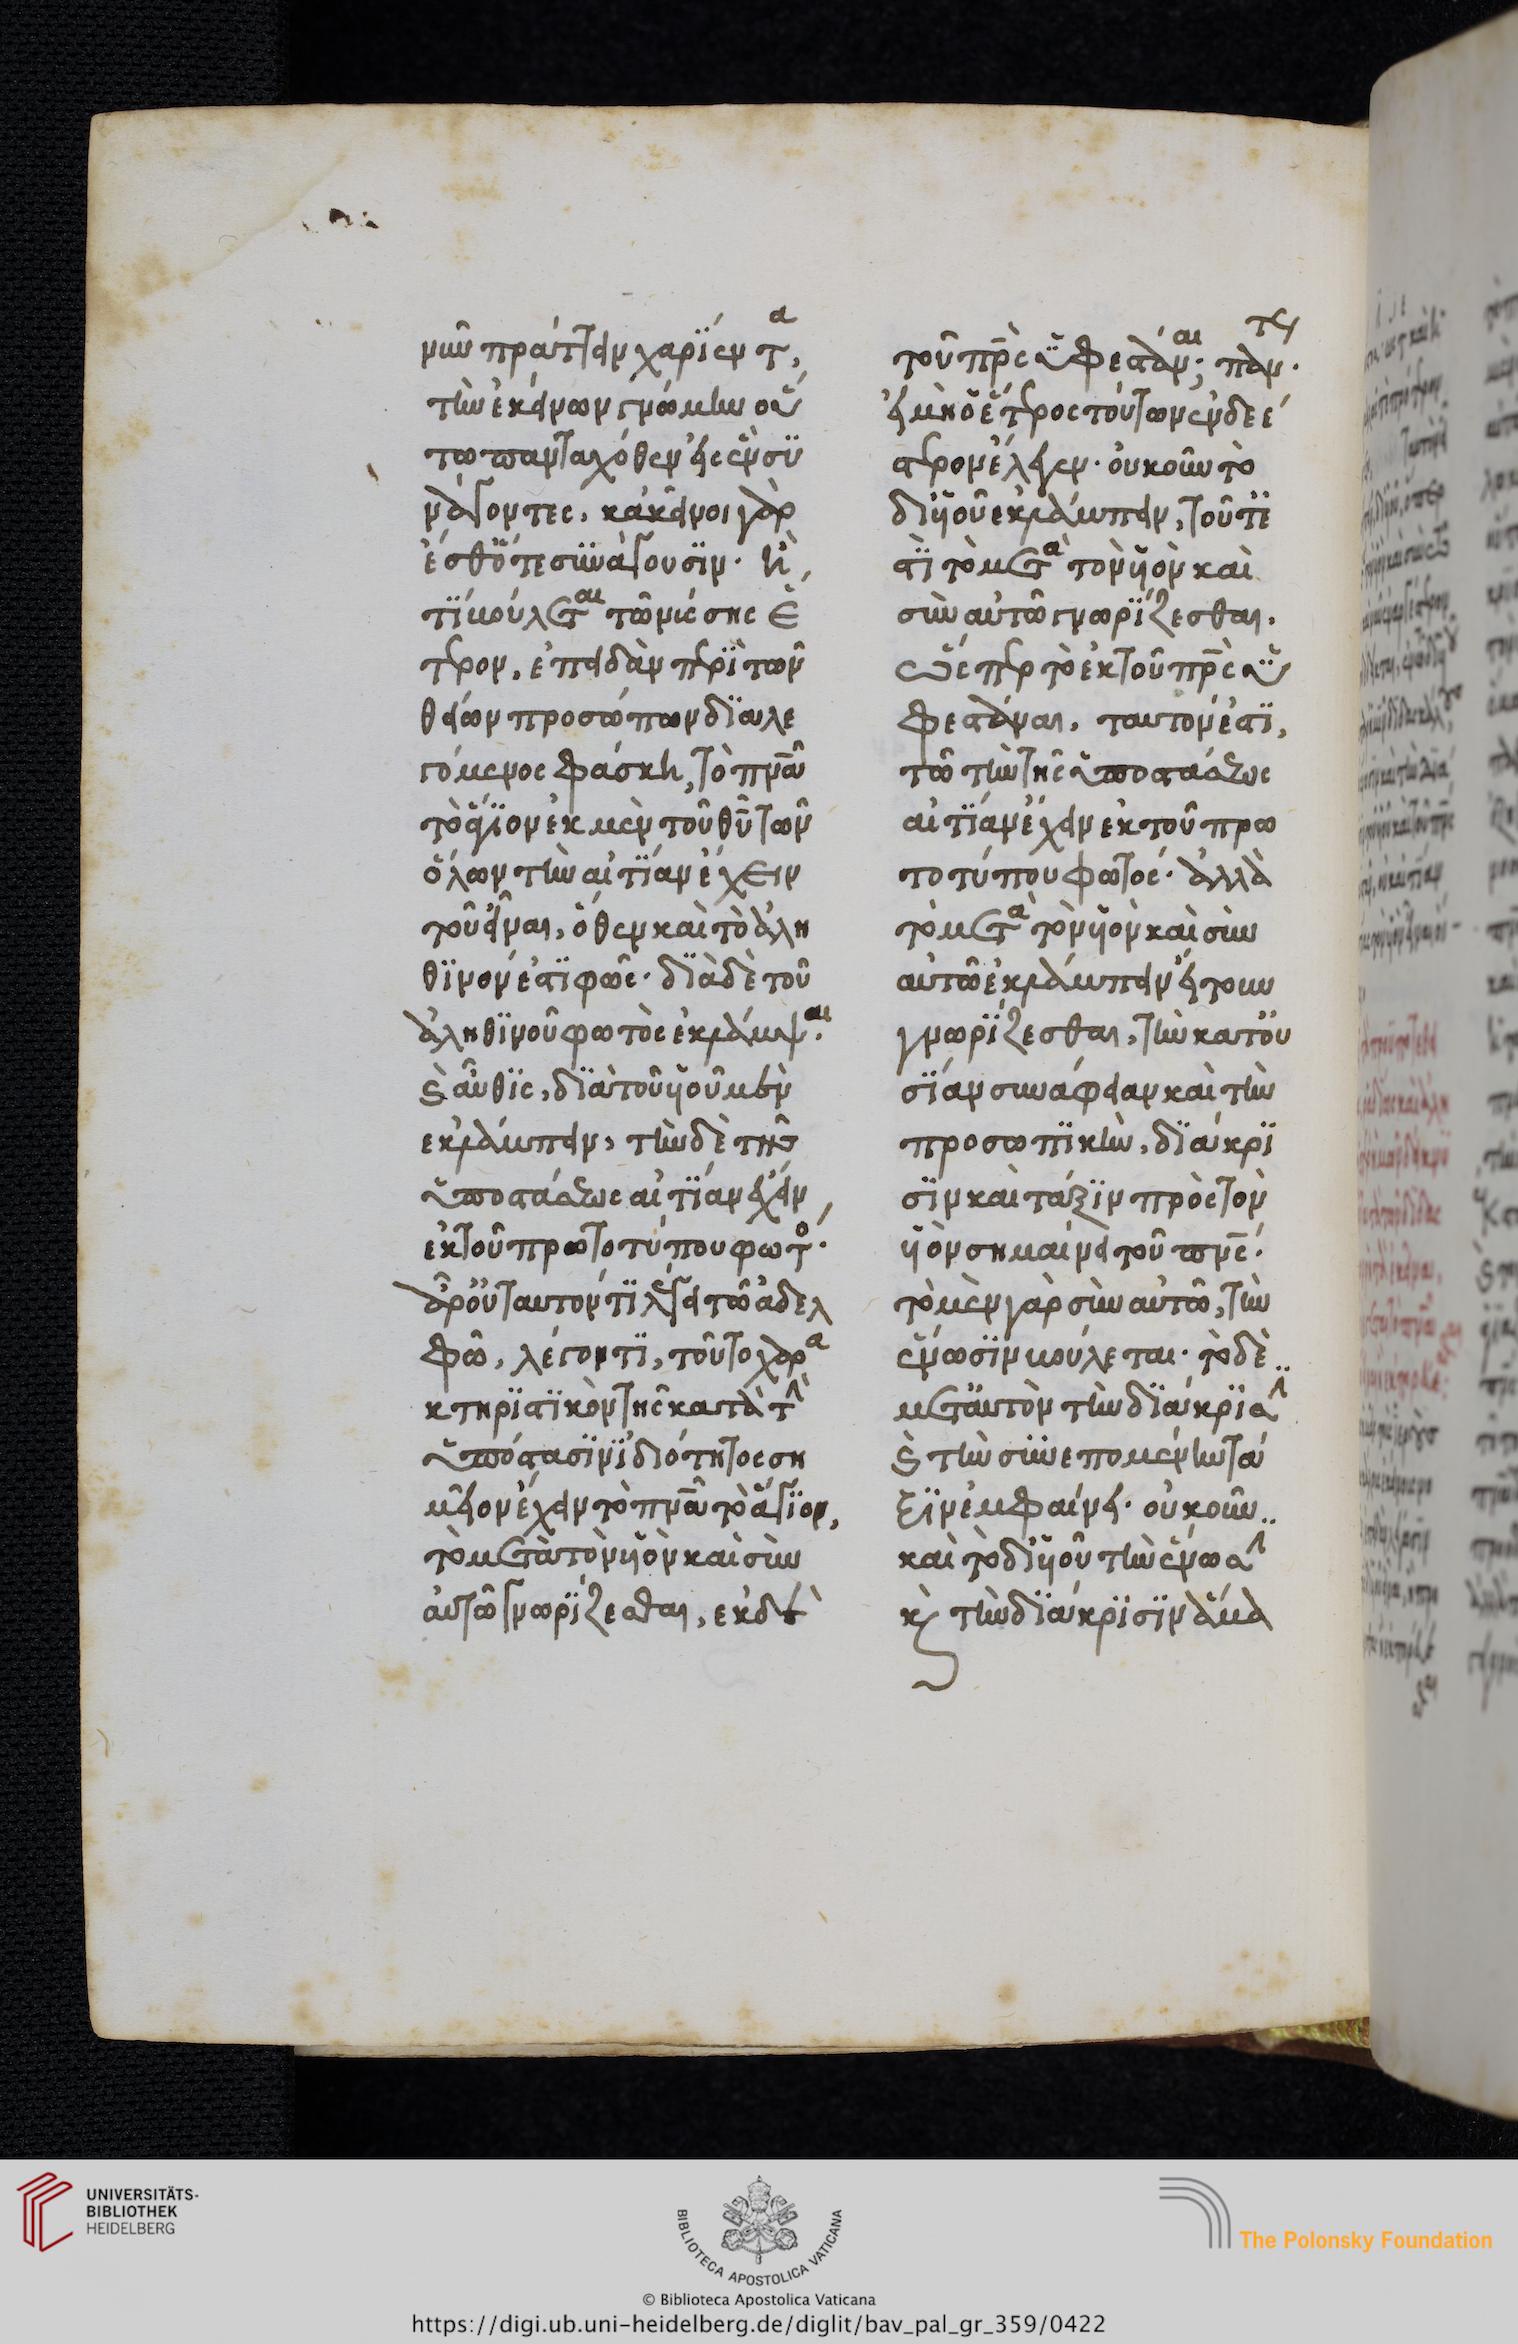 μιν πράττειν χαρίεντα,
τὴν ἐκείνων γνώμην οὕ
τω πανταχόθεν εἰς ἓν συ
νάγοντες, κἀκεῖνοι γὰρ
ἔσθ ὅτε συνάγουσιν. ἢ,
τί βούλεται τῷ νύσσης ἕ
τερον, ἐπειδὰν περὶ τῶν
θείων προσώπων διαλε
γόμενος φάσκη, τὸ πνᾶ
τὸ ἅγιον ἐκ μὲν τοῦ θῦ τῶν
ὅλων τὴν αἰτίαν ἔχειν
τοῦ εἶναι, ὅθεν καὶ τὸ ἀλη
θινόν ἐστι φῶς. διὰ δὲ τοῦ
ἀληθινοῦ φωτὸς ἐκλάμψαι.
καὶ αὖθις, διὰ τοῦ υἱοῦ μὲν
ἐκλάμπειν, τὴν δὲ τῆς
ὑποστάσεως αἰτίαν ἔχειν,
ἐκ τοῦ πρωτοτύπου φωτός.
ἆρ οὐ ταυτόν τι λέγει τῷ ἀδελ
φῷ, λέγοντι, τοῦτο χαρα
κτηριστικὸν τῆς κατὰ τὴν
ὑπόστασιν ἰδιότητος ση
μεῖον ἔχειν τὸ πνᾶ τὸ ἅγιον,
τὸ μετὰ τὸν υἱὸν καὶ σὺν
αὐτῷ γνωρίζεσθαι, ἐκ δὲ
τοῦ πρς ὑφεστάναι; πάντη.
εἰ μὴ ὁ ἕτερος τούτων ἐνδεέ
στερον ἔλεγεν. οὐκοῦν τὸ
δι υἱοῦ ἐκλάμπειν, τοῦτέ
στι τὸ μετὰ τὸν υἱὸν καὶ
σὺν αὐτῷ γνωρίζεσθαι.
ὥσπερ τὸ ἐκ τοῦ πρς ὑ
φεστάναι, ταυτόν ἐστι,
τῷ τὴν τῆς ὑποστάσεως
αἰτίαν ἔχειν ἐκ τοῦ πρω
τοτύπου φωτός. ἀλλὰ
τὸ μετὰ τὸν υἱὸν καὶ σὺν
αὐτῷ ἐκλάμπειν ἤτουν
γνωρίζεσθαι, τὴν κατ οὐ
σίαν συνάφειαν καὶ τὴν
προσωπικὴν, διάκρι
σιν καὶ τάξιν πρὸς τὸν
υἱὸν σημαίνει τοῦ πνς.
τὸ μὲν γὰρ σὺν αὐτῷ, τὴν
ἕνωσιν βούλεται. τὸ δὲ
μετ αὐτὸν τὴν διάκρισιν
καὶ τὴν συνεπομένην τά
ξιν ἐμφαίνει. οὐκοῦν
καὶ τὸ δι υἱοῦ τὴν ἕνωσιν
καὶ τὴν διάκρισιν ἅμα
UNIVERSITÄTS-
BIBLIOTHEK
HEIDELBERG
BIBLIOTECA APOSTOLICA VATICANA
The Polonsky Foundation
© Biblioteca Apostolica Vaticana
https://digi.ub.uni-heidelberg.de/diglit/bav_pal_gr_359/0422